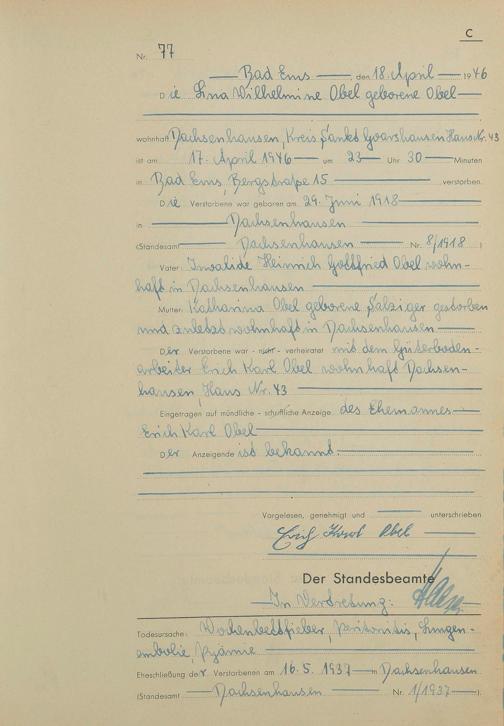 C
Nr. 77
Bad Ems, den 18. April 1946
Die Lina Wilhelmine Obel geborene Obel
wohnhaft Dachsenhausen, Kreis Sankt Goarshausen Haus Nr. 43
ist am 17. April 1946 um 23 Uhr 30 Minuten
in Bad Ems, Bergstraße 15 verstorben.
Die Verstorbene war geboren am 29. Juni 1918
in Dachsenhausen
(Standesamt Dachsenhausen Nr. 8/1918)
Vater: Invalide Heinrich Gottfried Obel wohn-
haft in Dachsenhausen
Mutter: Katharina Obel geborene Salziger gestorben
und zuletzt wohnhaft in Dachsenhausen
Der Verstorbene war - nicht - verheiratet mit dem Güterboden-
arbeiter Erich Karl Obel wohnhaft Dachsen-
hausen, Haus Nr. 43
Eingetragen auf mündliche - schriftliche Anzeige des Ehemannes
Erich Karl Obel
Der Anzeigende ist bekannt.
Vorgelesen, genehmigt und unterschrieben
Erich Karl Obel
Der Standesbeamte
In Vertretung:
Todesursache: Wochenbettfieber, Peritonitis, Lungen-
embolie, Pyämie
Eheschließung der Verstorbenen am 16.5.1937 in Dachsenhausen
(Standesamt Dachsenhausen Nr. 1/1937).